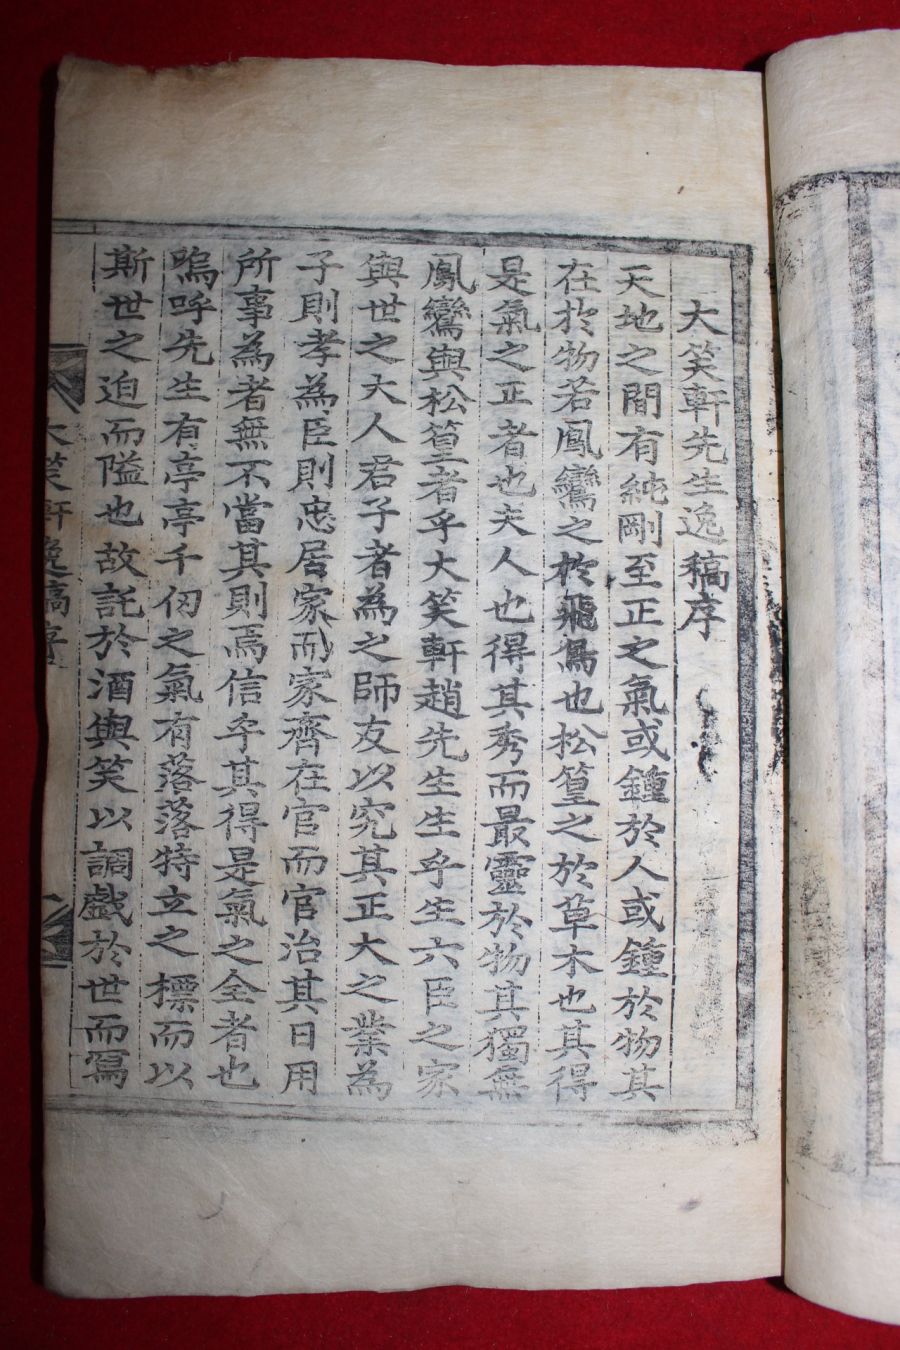 大笑軒先生逸稿序
天地之間有純剛至正之氣或鍾於人或鍾於物其
在於物若鳳鸞之於飛鳥也松篁之於草木也其得
是氣之正者也夫人也得其秀而最靈於物其獨無
鳳鸞與松篁者乎大笑軒趙先生生乎生六臣之家
與世之大人君子者為之師友以究其正大之業為
子則孝為臣則忠居家而家齊在官而官治其日用
所事為者無不當其則焉信乎其得是氣之全者也
嗚呼先生有亭亭千仞之氣有落落特立之標而以
斯世之迫而隘也故託於酒與笑以調戲於世而寫
大笑軒逸稿序